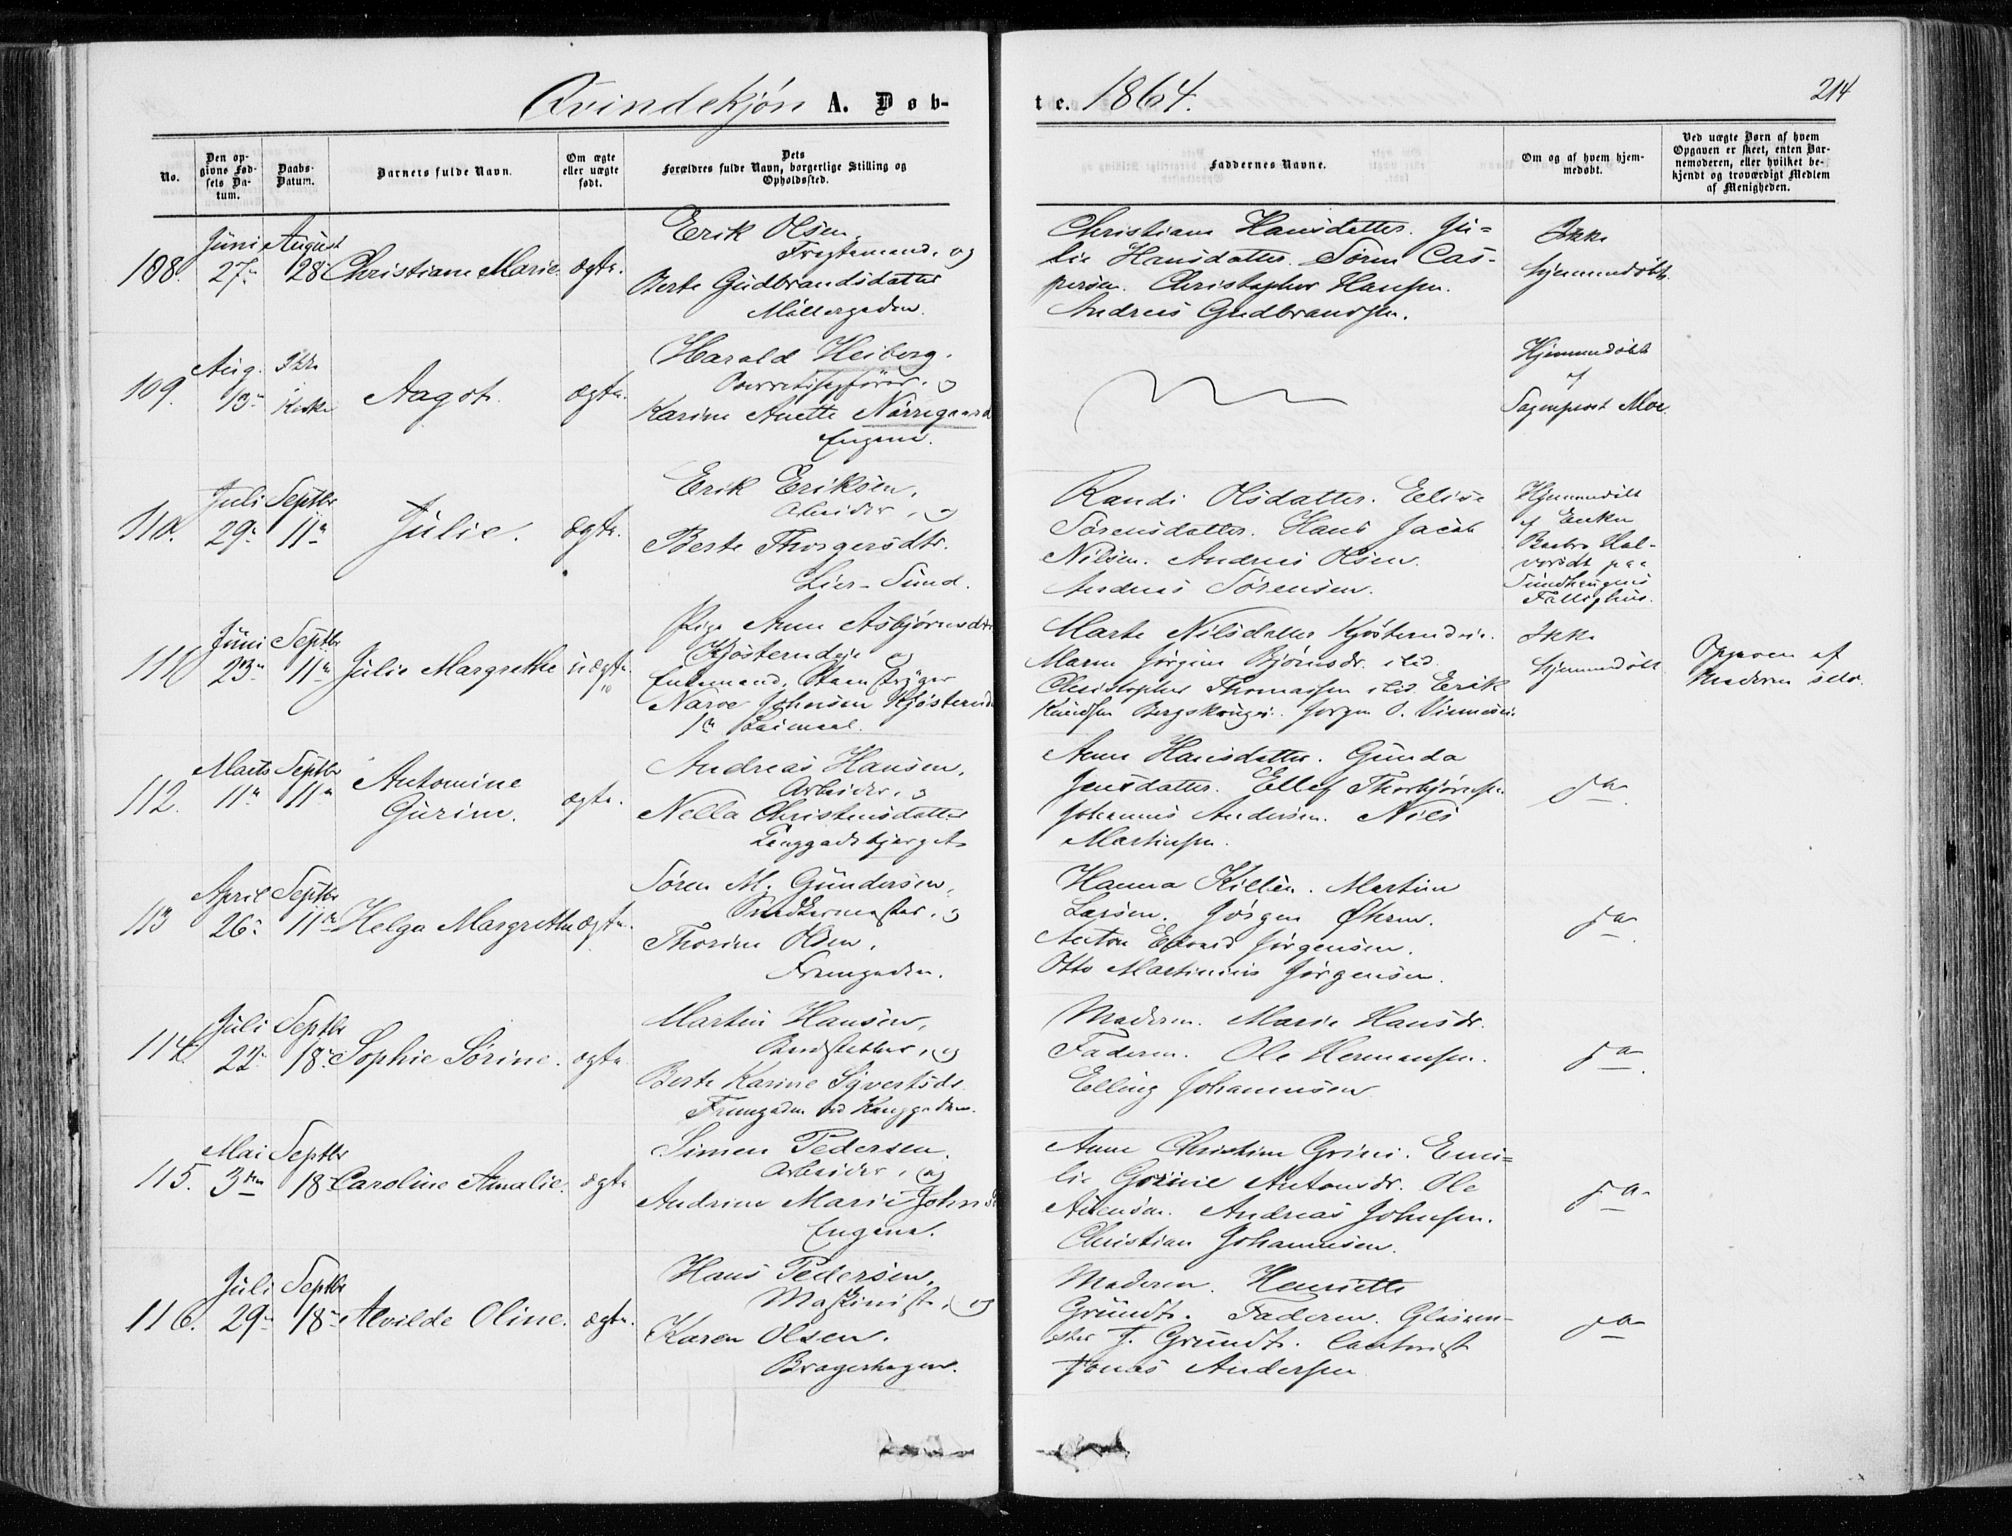 Qvindekjøn A. Døb-
te. 1864.
214
No.
Den op-
givne Fød-
sels Da-
tum.
Daabs-
Datum.
Barnets fulde Navn.
Om ægte
eller uægte
født.
Dets
Forældres fulde Navn, borgerlige Stilling og
Opholdssted.
Faddernes Navne.
Om og af hvem hjem-
medøbt.
Ved uægte Børn af hvem
Opgaven er skeet, enten Bar-
nemoderen, eller hvilket be-
kjendt og troværdigt Medlem
af Menigheden.
108.
Juni
27.
August
28
Christiane Marie
ægte.
Erik Olsen,
Fragtemand, og
Berte Gudbrandsdatter
Møllergaden.
Christiane Hansdatter. Ju-
lie Hansdatter. Søren Cas-
persen. Christopher Hansen.
Andreas Gudbrandsen.
Ikke
hjemmedøbt.
109.
Aug.
13
Ikke
Kirke
Aagot.
ægte.
Harald Heiberg.
Overretssagfører, og
Karine Anette Nørregaard
Engene.
Hjemmedøbt
af
Sogneprest Moe
110.
Juli
29
Septbr
11
Julie.
ægte.
Erik Eriksen,
Arbeider, og
Berte Thorgersdtr.
Lier-Sund.
Randi Olsdatter. Elise
Sørensdatter. Hans Jacob
Nilsen. Andreas Olsen.
Andreas Sørensen.
Hjemmedøbt
af Enke
Barbro Hal-
vorsdt paa
Sundhaugens
Fattighus.
111
Juni
23
Septbr
11
Julie Margrethe
uægte
Pige Anne Asbjørnsdtr
Kjøsterudeie og
Enkemand,
Narve Johnsen Kjøsterud
Marte Nilsdatter Kjøsterudeie.
Maren Jørgine Bjørnsdr. ibid.
Christopher Thomassen ibid. Erik
Knudsen Bergskougei. Jørgen O.
Ikke
hjemmedøbt
Opgaven af
Moderen selv.
112.
Marts
11
Septbr
11
Antomine
Gurine.
ægte.
Andreas Hansen,
Arbeider, og
Nella Christensdatter
Anne Hansdatter. Gunda
Jensdatter. Ellef Thorbjørnsen
Johannes Andersen. Nils
Martinsen.
do
113
April
26
Septbr
11
Helga Margrethe
ægte.
Søren M. Gundersen,
Snedkermester, og
Thorine Olsen,
Fremgaden.
Hanna Killén. Martine
Larsen. Jørgen Øhren.
Anton Edvard Jørgensen.
Otto Martinius Jørgensen.
do
114
Juli
22
Septbr
18
Sophie Sørine.
ægte
Martin Hansen,
Bundtstabler, og
Berte Karine Syvertsdr.
Fremgaden
Moderen. Marie Hansdr.
Faderen. Ole Hermansen.
Elling Johannesen
do
115.
Mai
3
Septbr
18
Caroline Amalie.
ægte
Simen Pedersen.
Arbeider, og
Andrine Marie Johnsdr
Engene.
Anne Christine Grini. Emi-
lie Gorine Antonsdr. Ole
Andreas Johnsen.
Christian Johannesen.
do
116.
Juli
29
Septbr
18
Alvilde Oline.
ægte.
Hans Pedersen,
Maskinist, og
Karen Olsen.
Bragerhagen.
Moderen. Henriette
Grundt. Faderen. Glasme-
ster J. Grundt. Contorist
Jonas Andersen
do